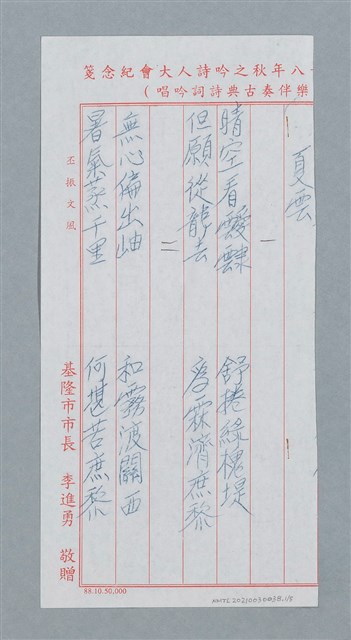 八年秋之吟詩人大會紀念箋
樂伴奏古典詩詞吟唱)
夏雲
一
晴空看靉靆 舒捲綠槐堤
但願從龍去 為霖濟庶黎
二
無心偏出岫 和霧渡關西
暑氣蒸千里 何堪苦庶黎
丕振文風
基隆市市長 李進勇 敬贈
88.10.50,000